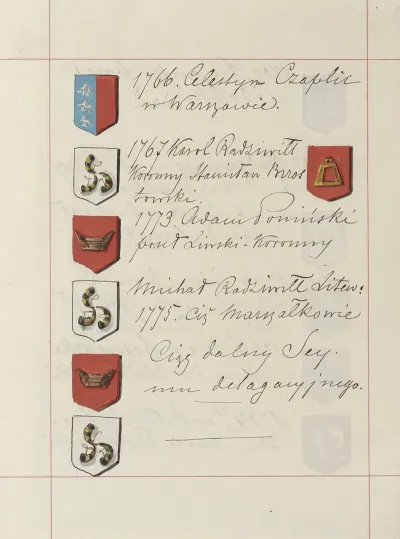 1766. Celestyn Czaplic
w Warszawie.
1767 Karol Radziwiłł
Koronny Stanisław Brzos
towski
1773. Adam Poniński
Koronny
Michał Radziwiłł Litew:
1775. Ciż Marszałkowie
Ciąg dalszy Sey.
mu delagacyjnego.